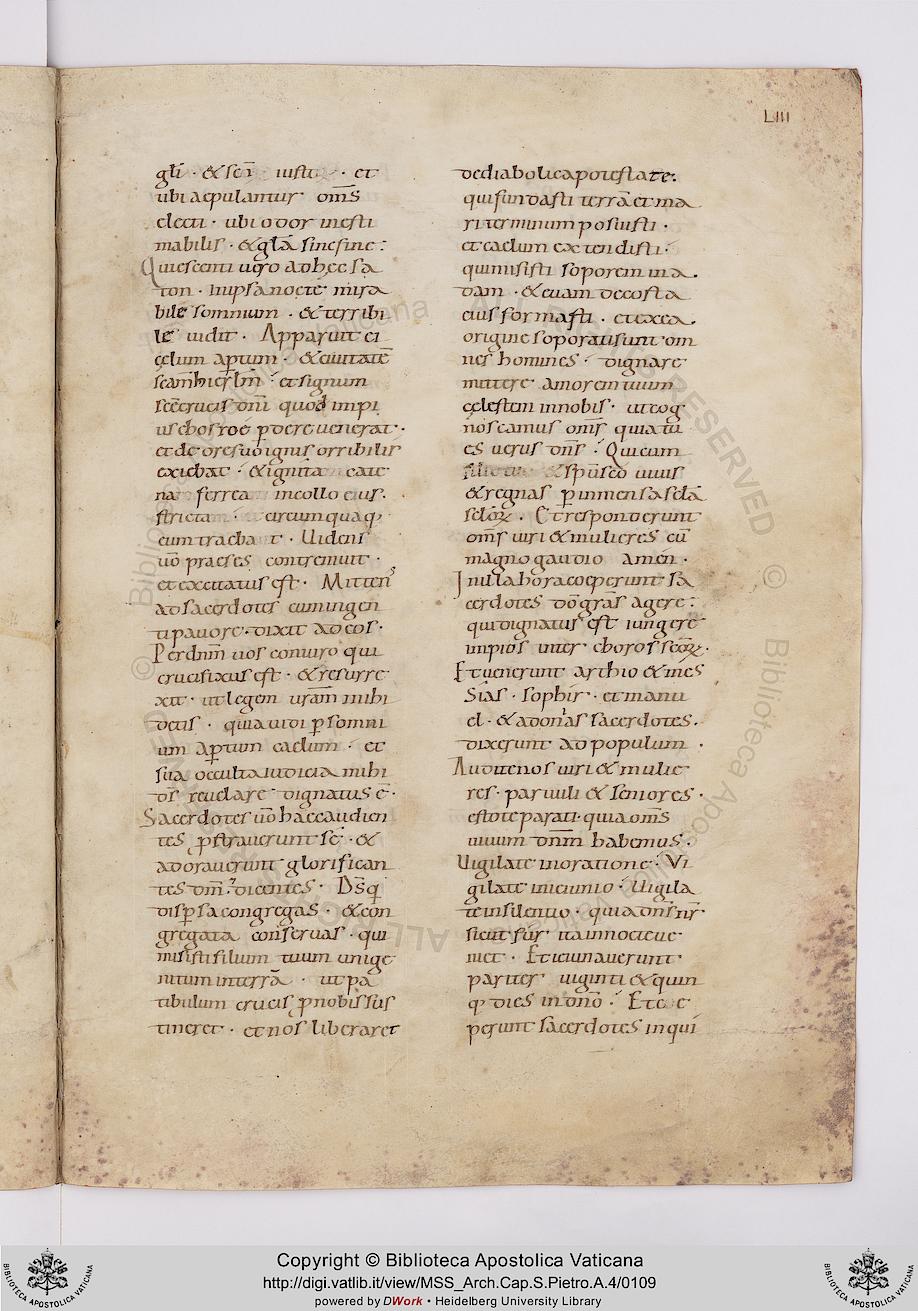 LIII
gl̄i · & sc̄i iusti · et
ubi aepulantur om̄s
electi · ubi odor inesti
mabilis · & gl̄a sine fine :
Quiescenti uero adhęc sa
ton · In ipsa nocte misa
bile somnium · & terribi
le uidit · Apparuit ei
cęlum ap̱tum · & ciuitatē
sc̄am hierl̄m · et signum
sc̄ę crucis dn̄i quod impi
us chosroe p̱dere uenerat ·
et de ore suo ignis orribilis
exiebat · & ignita cate
na ferrea in collo eius ·
stricta circum quaq;
eum traeba t · Uidens
uō praeses contremuit ·
et excitatus est · Mittens
ad sacerdotes cum ingen
ti pauore · dixit ad eos ·
Per dn̄m uos coniuro qui
crucifixus est · & resurre
xit · ut legem ur̄am mihi
detis · quia uidi p̱ somni
um ap̱tum caelum · et
sua occulta iudicia mihi
dς̄ reuelare dignatus ē ·
Sacerdotes uō haec audien
tes p̱strauerunt sē · &
adorauerunt glorifican
tes dn̄m · dicentes · Ds̄ q̄
disp̱sa congregas · & con
gregata conseruas · qui
misisti filium tuum unige
nitum in terrā · ut pa
tibulum crucis p̱ nobis sus
tineret · et nos liberaret
de diabolica potestate ·
qui fundasti terrā et ma
ri terminum posuisti ·
et caelum extendisti ·
qui misisti soporem in a ·
dam · & euam de costa
eius formasti · et ex ea ·
origine soporati sunt om
nes homines · dignare
mittere amorem tuum
cęlestem in nobis · ut cog
noscamus om̄s quia tu
es uerus dn̄s · Qui cum
filio & sp̄u sc̄o uiuis
& regnas p̱ inmensa sc̄la
sc̄loꝝ · Et responderunt
om̄s uiri & mulieres cū
magno gaudio amen ·
In illa hora coeperunt sa
cerdotes dō gr̄as agere :
qui dignatus est iungere
impios inter choros sc̄oꝝ ·
Et uenerunt archio & mes
sias · sophir · et manu
el · & adonias sacerdotes ·
dixerunt ad populum ·
Audite nos uiri & mulie
res · paruuli & seniores ·
estote parati · quia om̄s
unum dn̄m habemus ·
Uigilate in oratione · Vi
gilate in ieiunio · Uigila
te in silentio · quia dn̄s nr̄
sicut fur ita in nocte ue
niet · Et ieiunauerunt
pariter uiginti & quin
q; dies in dn̄o · Et c e
perunt sacerdotes inqui
Copyright © Biblioteca Apostolica Vaticana
http://digi.vatlib.it/view/MSS_Arch.Cap.S.Pietro.A.4/0109
powered by DWork • Heidelberg University Library